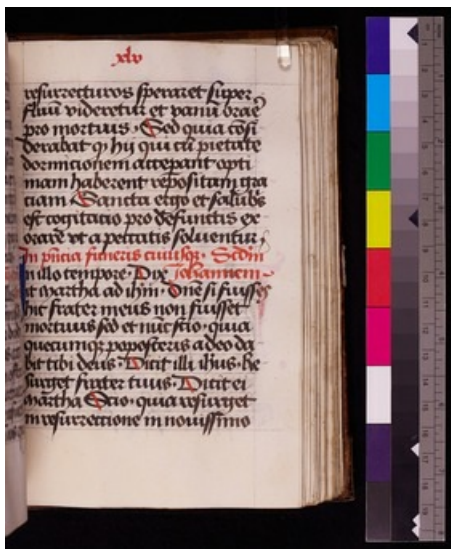 xlv
resurrecturos speraret super
fluū videretur et vanū orare
pro mortuis. Sed quia cōsi
derabat q̨ hij qui cū pietate
dormicionem acceperant opti
mam haberent repositam gra
ciam Sancta ergo et salubris
est cogitacio pro defunctis ex
orare vt a peccatis soluentur,
In pñcia funeris cuiusqꝫ. Scdm
In illo tempore. Dixit Johannem
martha ad ihm. Dne si fuisses
hic frater meus non fuisset
mortuus sed et nūc scio. quia
quecumqꝫ poposceris a deo da
bit tibi deus. Dicit illi ihus. Re
surget frater tuus. Dicit ei
martha Scio. quia resurget
in resurrectione in nouissimo